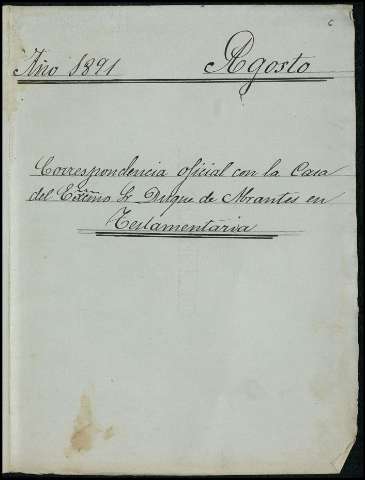 6
Año 1891 Agosto
Correspondencia oficial con la Casa
del Exmo Sr Duque de Abrantes en
Testamentaria